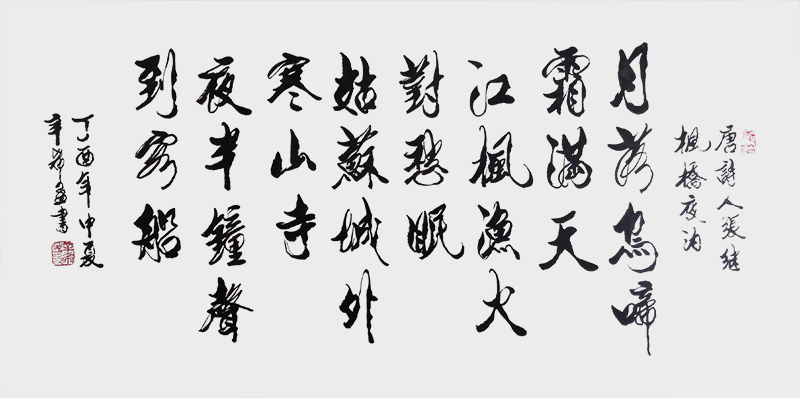 唐詩人張继
楓橋夜泊
月落烏啼
霜滿天
江楓漁火
對愁眠
姑蘇城外
寒山寺
夜半鐘聲
到客船
丁酉年中夏